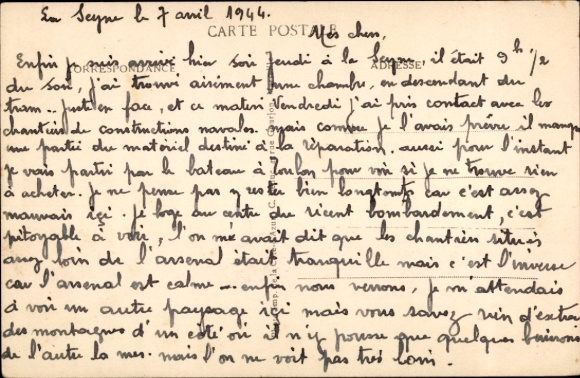 La Seyne le 7 avril 1944.
CARTE POSTALE
Mes chers,
Enfin je suis arrivé hier soir jeudi à la Seyne, il était 9h 1/2
CORRESPONDANCE
ADRESSE
du soir, j'ai trouvé aisément une chambre, en descendant du
tram.. juste en face, et ce matin vendredi j'ai pris contact avec les
chantiers de constructions navales. mais comme je l'avais prévu il manque
une partie du matériel destiné à la réparation. aussi pour l'instant
je vais partir par le bateau à toulon pour voir si je ne trouve rien
à acheter. Je ne pense pas y rester bien longtemps car c'est assez
mauvais içi. Je loge au centre du récent bombardement, c'est
pitoyable à voir, l'on m'avait dit que les chantiers situés
assez loin de l'arsenal était tranquille mais c'est l'inverse
car l'arsenal est calme... enfin nous verrons, je m'attendais
à voir un autre paysage içi mais vous savez rien d'extra
des montagnes d'un côté où il n'y pousse que quelques buissons
de l'autre la mer. mais l'on ne voit pas très loin.